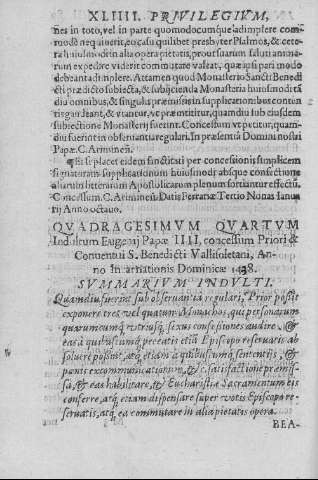 XLIIII. PRIVILEGIVM,
nes in toto, vel in parte quomodocumque adimplere com-
mode neq́uierit, eo casu quilibet presbyter Psalmos, & cete-
ra huiusmodi in alia opera, prout suarum saluti animarum
rum expedire viderit commutare valeat, quae ipsi pari modo
debeant adimplere. Attamen quod Monasterio Sancti Benedi
cti praedicto subiecta, & subijcienda Monasteria huiusmodi tā
diu omnibus, & singulis praemissis in supplicationibus conten
tis gaudeant, & vtantur, vt praemittitur, quamdiu sub eiusdem
subiectione Monasterij fuerint. Concessum vt petitur, quam-
diu fuerint in obseruantia regulari. In praesentia Domini nostri
Papae. C. Ariminen̄.
¶ Et si placet eidem sanctitati per concessionis simplicem
signaturam supplicationum huiusmodj absque confectione
aliarum litterarum Apostolicarum plenum sortiantur effectū.
Concessum. C. Ariminen̄. Datis Ferrariae Tertio Nonas Ianua
rij Anno octauo.
QVADRAGESIMVM QVARTVM
Indultum Eugenij Papae IIII, concessum Priori &
Conuentui S. Benedicti Vallisoletani, An-
no Incarnationis Dominicae 1438.
SVMMARIVM INDVLTI.
Quamdiu fuerint sub obseruantia regulari, Prior possit
exponere tres vel quatuor Monachos, qui personarum
quarumcumq́; vtriusq́; sexus confessiones audire, &
eas à quibuscumq́; peccatis etiā Episcopo reseruatis ab
soluere possint, atq́; etiam à quibuscumq́; sententijs, &
poenis excommunicationum, & c. satisfactione praemis-
sa, & eas habilitare, & Eucharistiae Sacramentum eis
conferre, atq́; etiam dispensare super votis Episcopo re-
seruatis, atq́; ea commutare in alia pietatis opera.
BEA-